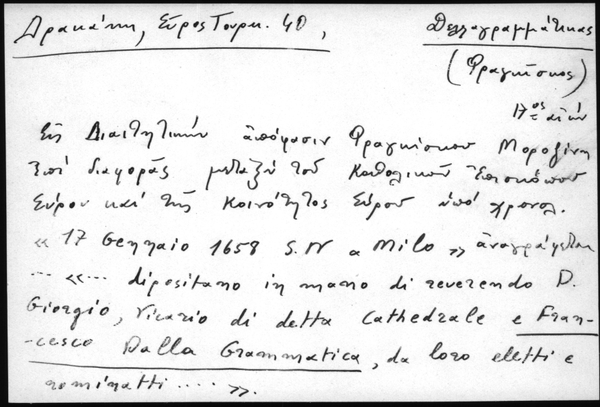 Δρακάκη, Σύρος Τουρκ. 40, Δελλαγραμμάτικας
(Φραγκίσκος)
17ος αἰών
Εἰς Διαιτητικήν ἀπόφασιν Φραγκίσκου Μοροζίνη
ἐπί διαφορᾶς μεταξύ τοῦ Καθολικοῦ Ἐπισκόπου
Σύρου καί τῆς Κοινότητος Σύρου ὑπό χρονολ.
« 17 Gennaio 1658 S.N a Milo » ἀναγράφεται
... «... dipositano in mano di reverendo D.
Giorgio, Vicario di detta Cathedrale e Fran-
-cesco Dalla Grammatica, da loro eletti e
nominatti .... ».